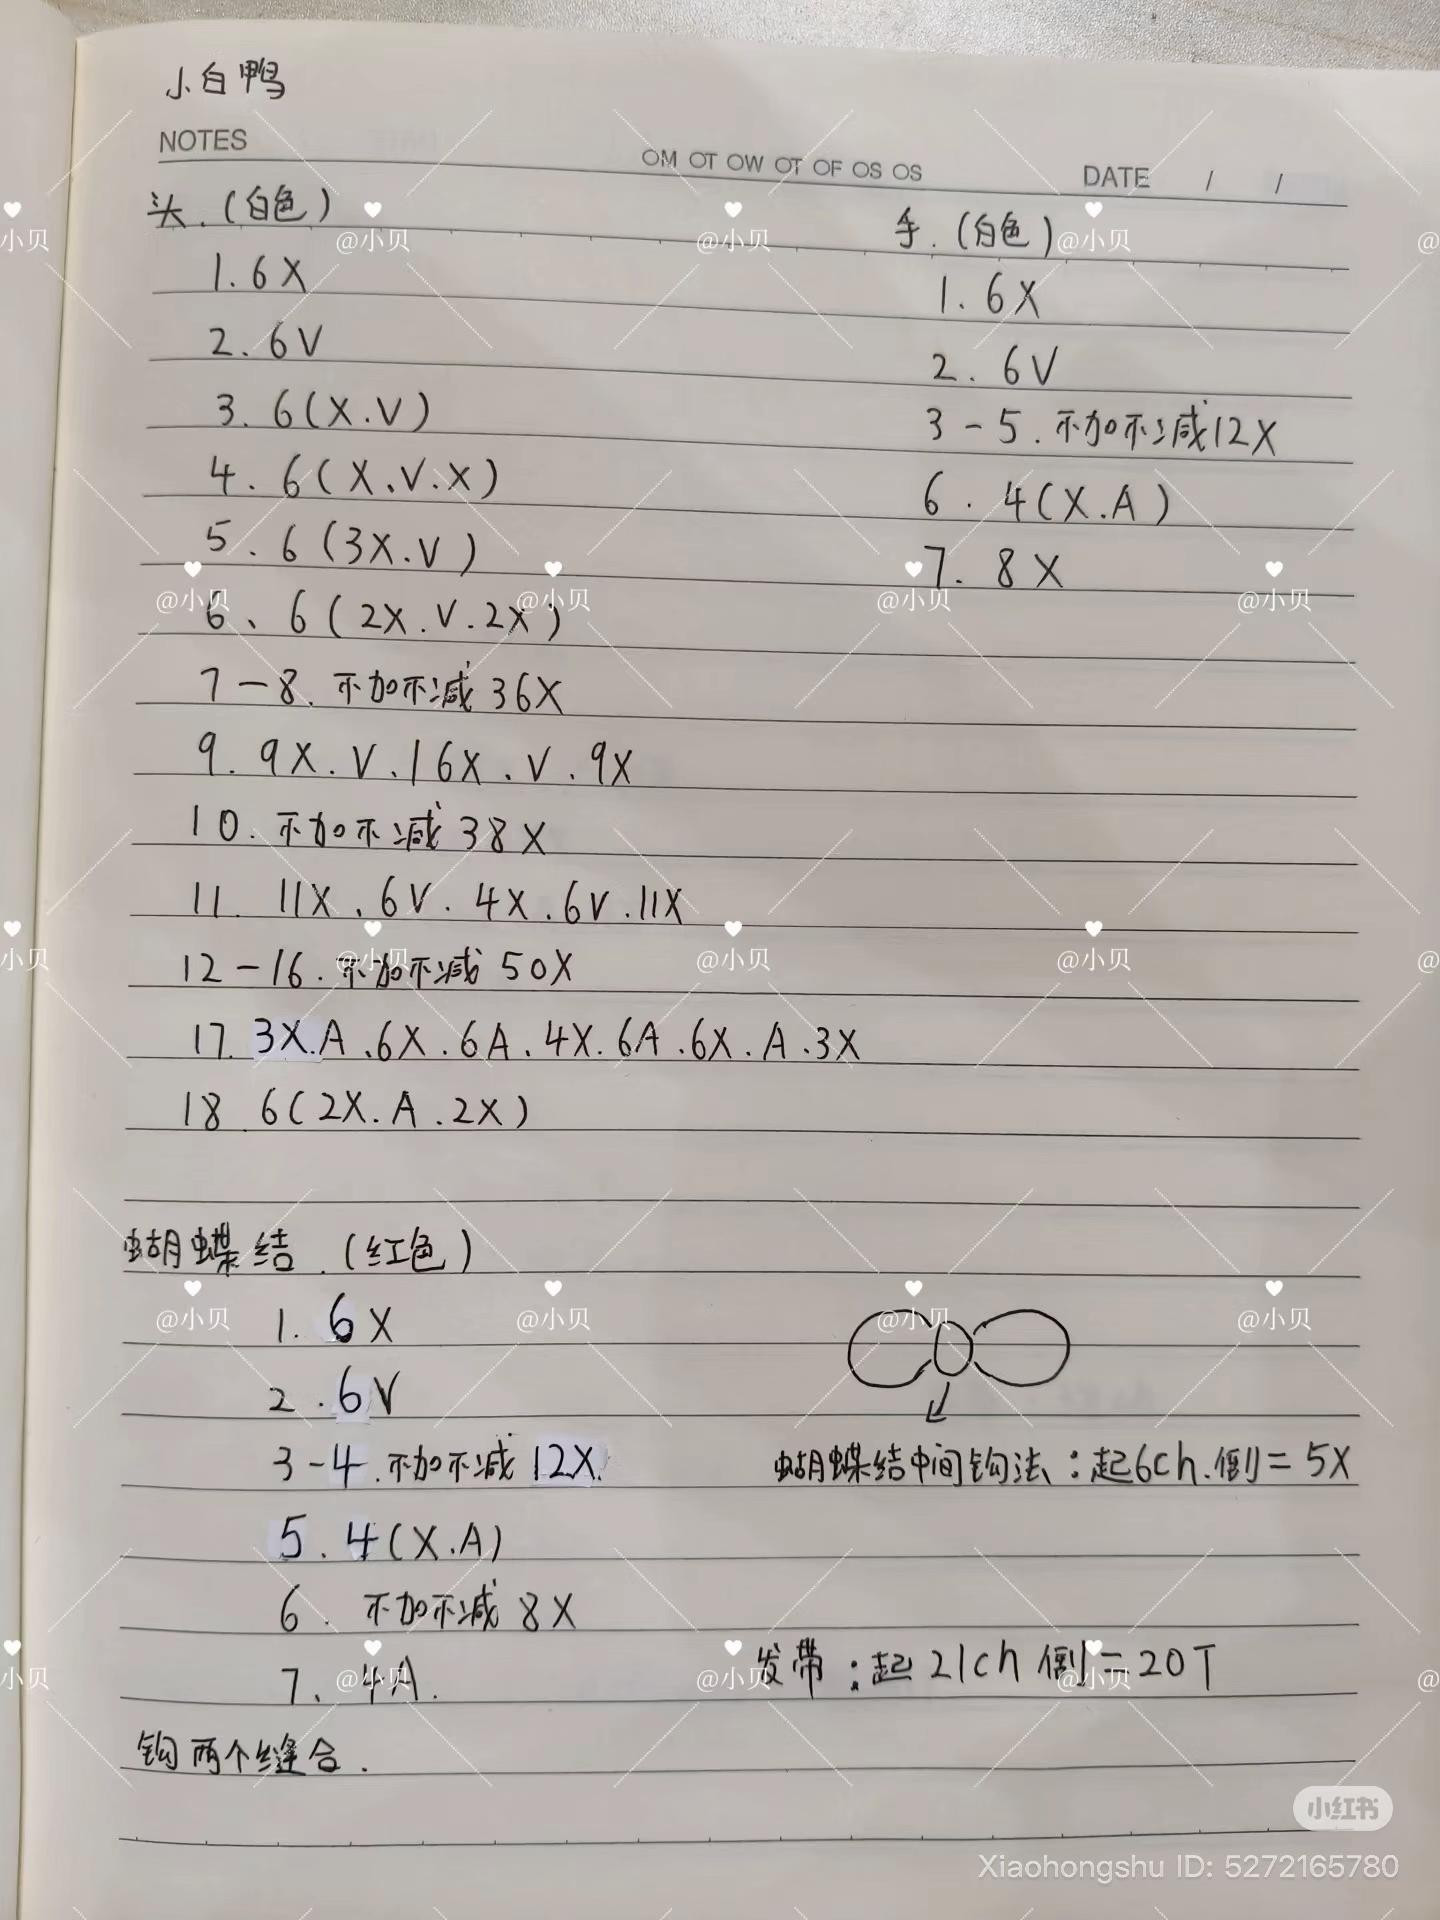 小白鸭
NOTES
OM OT OW OT OF OS OS
DATE / /
头.(白色)
1.6X
2.6V
3.6(X.V)
4.6(X.V.X)
5.6(3X.V)
6、6(2X.V.2X)
7-8.不加不减36X
9.9X.V.16X.V.9X
10.不加不减38X
11.11X.6V.4X.6V.11X
12-16.不加不减50X
17.3X.A.6X.6A.4X.6A.6X.A.3X
18.6(2X.A.2X)
手.(白色)
1.6X
2.6V
3-5.不加不减12X
6.4(X.A)
7.8X
蝴蝶结.(红色)
1.6X
2.6V
3-4.不加不减12X.
5.4(X.A)
6.不加不减8X
7、4A.
钩两个缝合.
蝴蝶结中间钩法:起6ch.倒=5X
发带:起21ch倒=20T
@小贝
小红书
Xiaohongshu ID: 5272165780